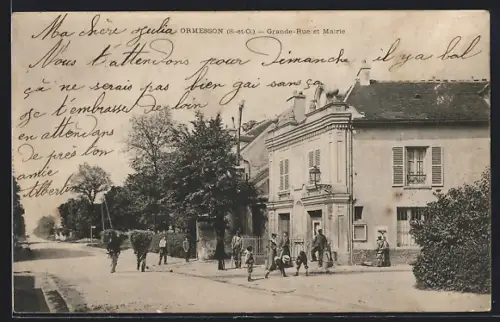 Ma chère Julia
ORMESSON (S-et-O.) — Grande-Rue et Mairie
Nous t'attendons pour Dimanche il y a bal
ça ne serais pas bien gai sans ça
Je t'embrasse de loin
en attendant
de près ton
amie